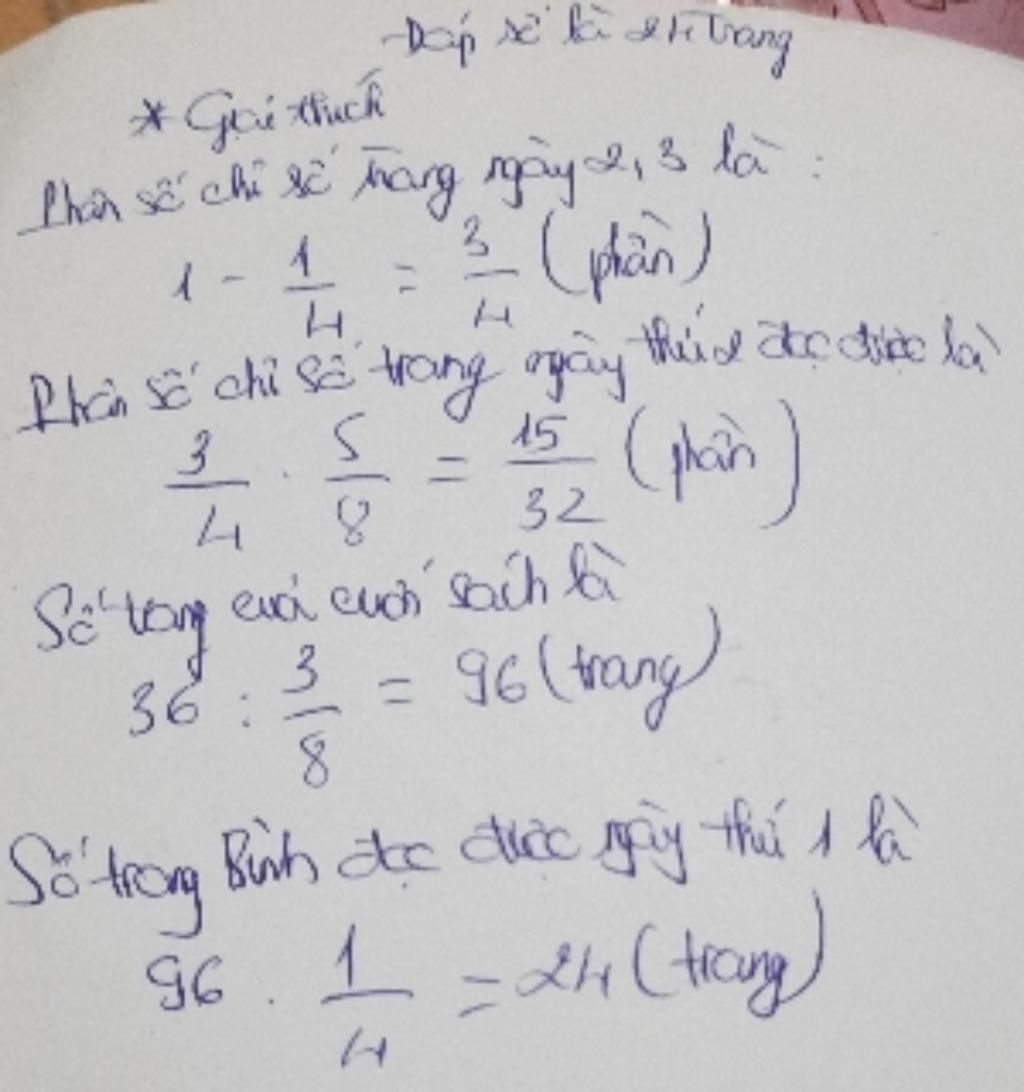 Đáp số là 24 Trang
* Giải thích
Phân số chỉ số trang ngày 2, 3 là :
1 - 1/4 = 3/4 (phần)
Phân số chỉ số trang ngày thứ 2 đọc được là
3/4 . 5/8 = 15/32 (phần)
Số trang của cuốn sách là
36 : 3/8 = 96 (trang)
Số trang Bình đọc được ngày thứ 1 là
96 . 1/4 = 24 (trang)